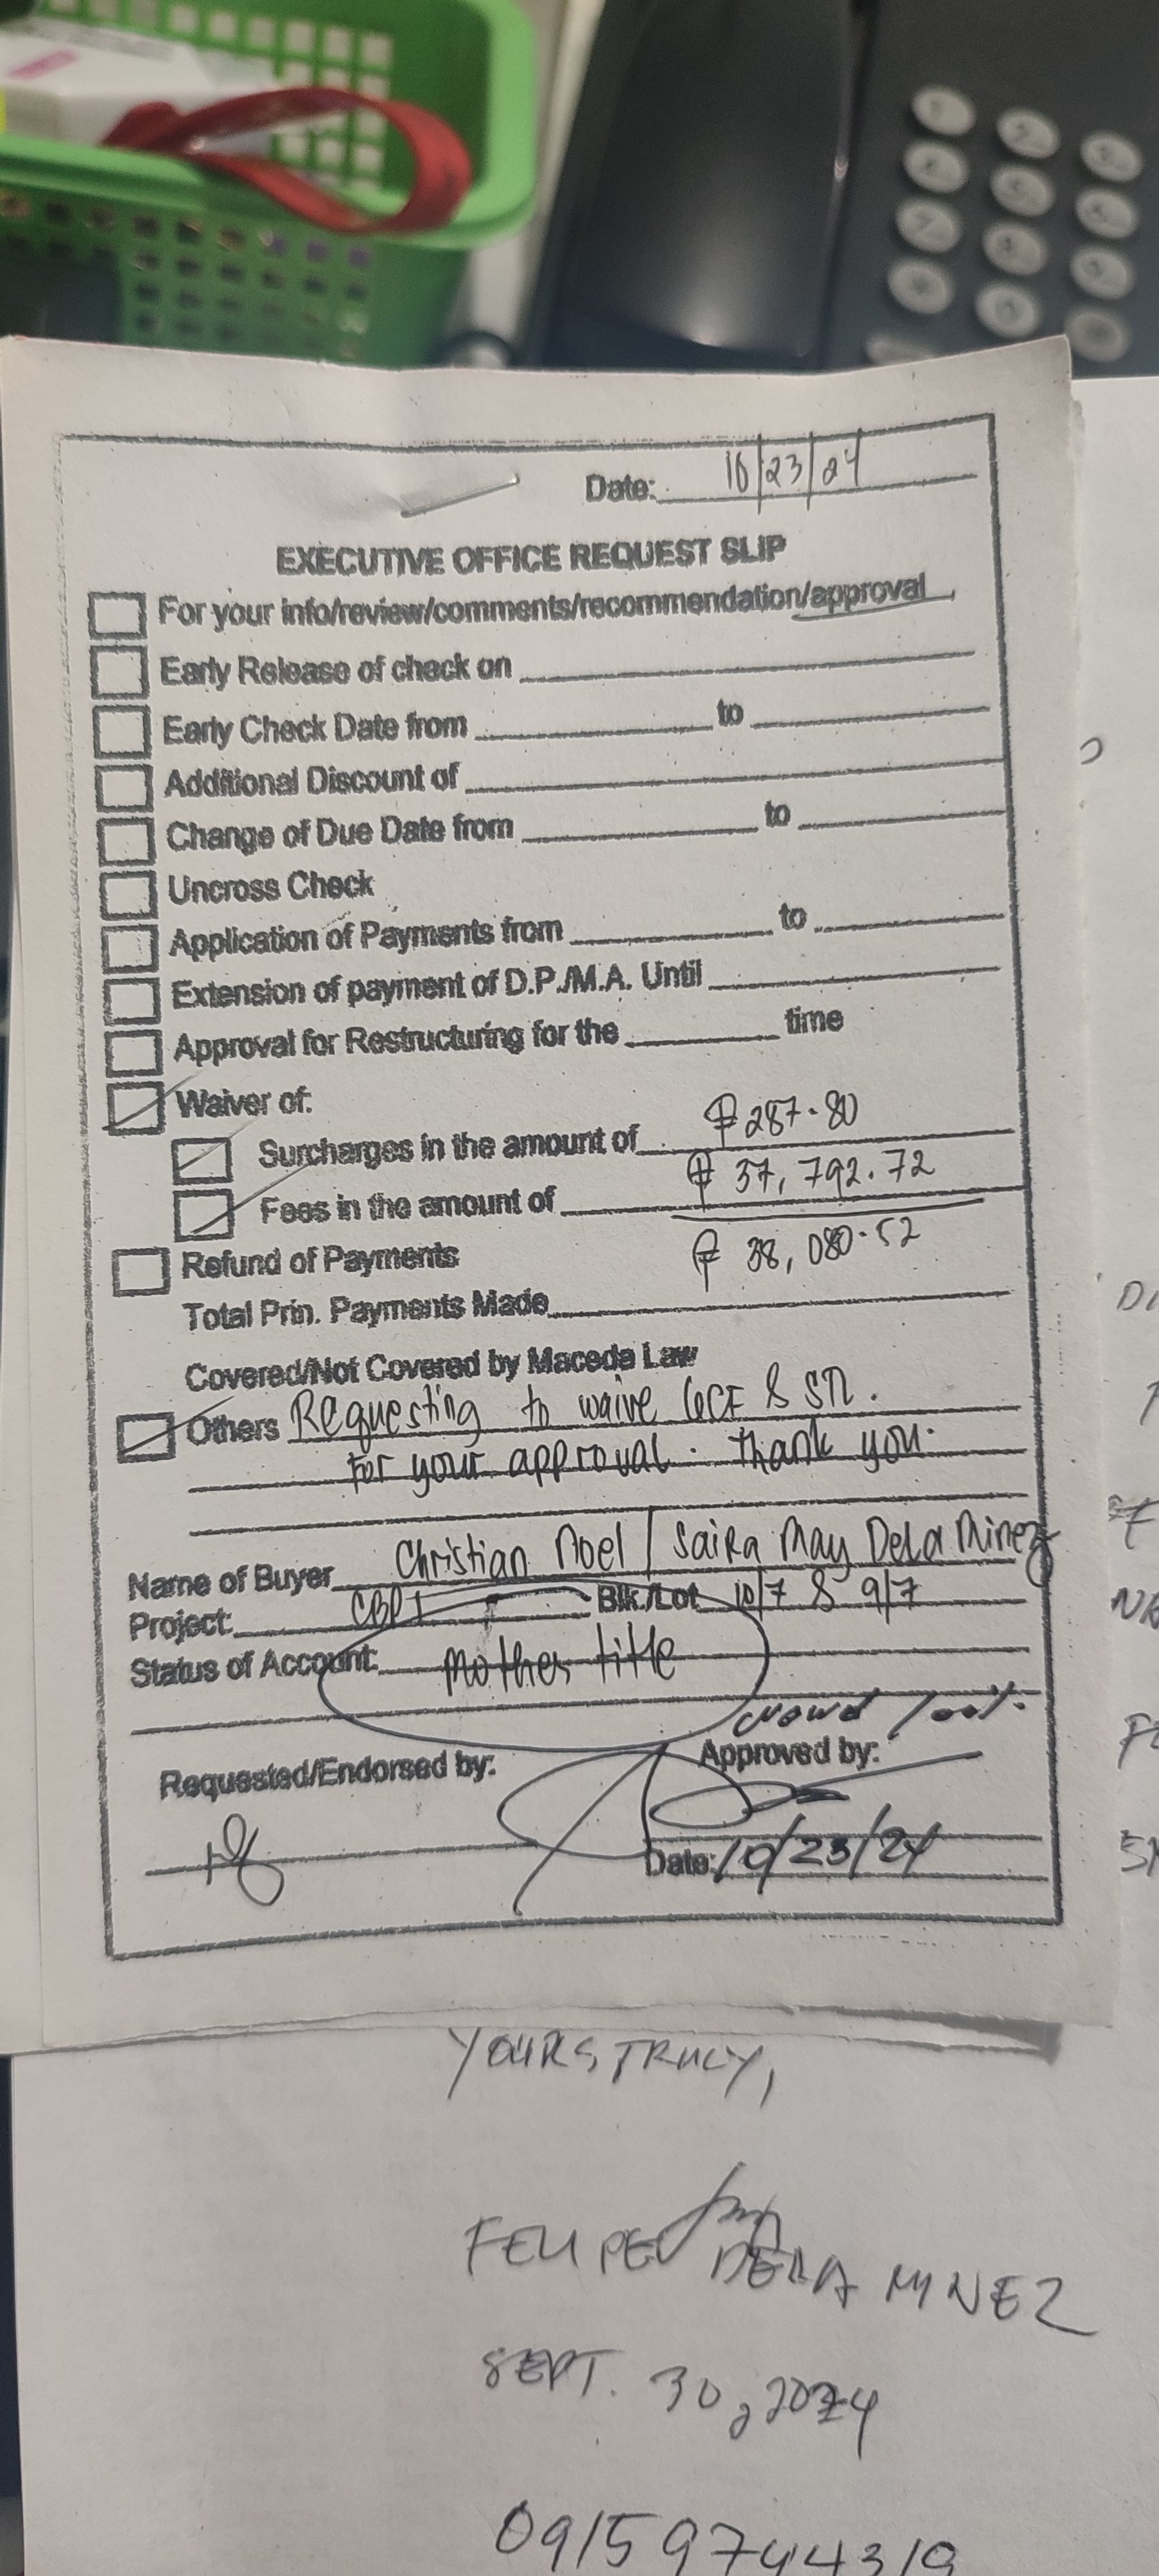 Date: 10/23/24
EXECUTIVE OFFICE REQUEST SLIP
For your info/review/comments/recommendation/approval
Early Release of check on
Early Check Date from to
Additional Discount of
Change of Due Date from to
Uncross Check
Application of Payments from to
Extension of payment of D.P./M.A. Until
Approval for Restructuring for the time
Waiver of:
Surcharges in the amount of ₱ 287.80
Fees in the amount of ₱ 37,792.72
₱ 38,080.52
Refund of Payments
Total Prin. Payments Made
Covered/Not Covered by Maceda Law
Others Requesting to waive &
For your approval. Thank you.
Name of Buyer Christian Noel / Saira May Dela Minez
Project: Blk./Lot 10/7 & 9/7
Status of Account: Mother title
Requested/Endorsed by: Approved by:
Date: 10/23/24
YOURS TRULY,
FELIPE DELA MINEZ
SEPT. 30, 2024
09159744319